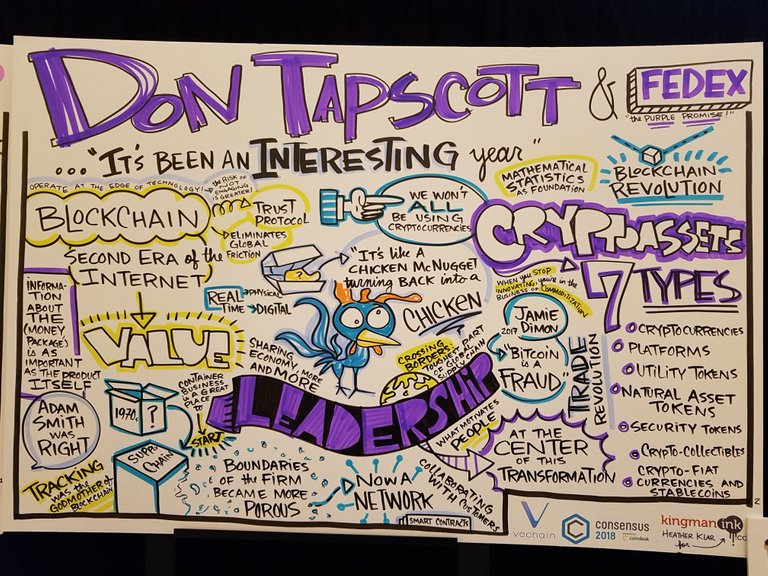 DON TAPSCOTT & FEDEX
"the PURPLE PROMISE!"
..."IT'S BEEN AN INTERESTING year"
OPERATE at the EDGE of TECHNOLOGY!
the RISK OF NOT ENGAGING IS GREATER!
BLOCKCHAIN
TRUST
PROTOCOL
ELIMINATES
GLOBAL
FRICTION
SECOND ERA of the
INTERNET
WE WON'T
ALL
BE USING
CRYPTOCURRENCIES
MATHEMATICAL
STATISTICS
AS FOUNDATION
BLOCKCHAIN
REVOLUTION
CRYPTOASSETS
7 TYPES
CRYPTOCURRENCIES
PLATFORMS
UTILITY TOKENS
NATURAL ASSET
TOKENS
SECURITY TOKENS
CRYPTO-COLLECTIBLES
CRYPTO-FIAT
CURRENCIES AND
STABLECOINS
"IT'S LIKE A
CHICKEN McNUGGET
turning BACK into a
CHICKEN
WHEN YOU STOP
INNOVATING, you're in the
BUSINESS OF COMMODITIZATION
JAMIE
DIMON
2017
"BITCOIN
IS A
FRAUD"
TRADE
REVOLUTION
INFORM-
ATION
ABOUT
THE
(MONEY
PACKAGE)
IS AS
IMPORTANT
AS THE PRODUCT
ITSELF
REAL
TIME
PHYSICAL
DIGITAL
VALUE
SHARING
ECONOMY,
AND MORE
CROSSING
BORDERS:
PART
OF
SUPPLY CHAIN
LEADERSHIP
CONTAINER
BUSINESS
IS A GREAT
PLACE
to
START
1970s
?
ADAM
SMITH
WAS
RIGHT
SUPPLY
CHAIN
TRACKING
WAS the
GODMOTHER of
BLOCKCHAIN
BOUNDARIES
of the FIRM
BECAME MORE
POROUS
NOW A
NETWORK
WHAT MOTIVATES
PEOPLE
COLLABORATING
WITH CUSTOMERS
SMART CONTRACT
AT THE
CENTER
OF THIS
TRANSFORMATION
vechain
consensus
2018
coindesk
kingman ink
HEATHER KLAR
for